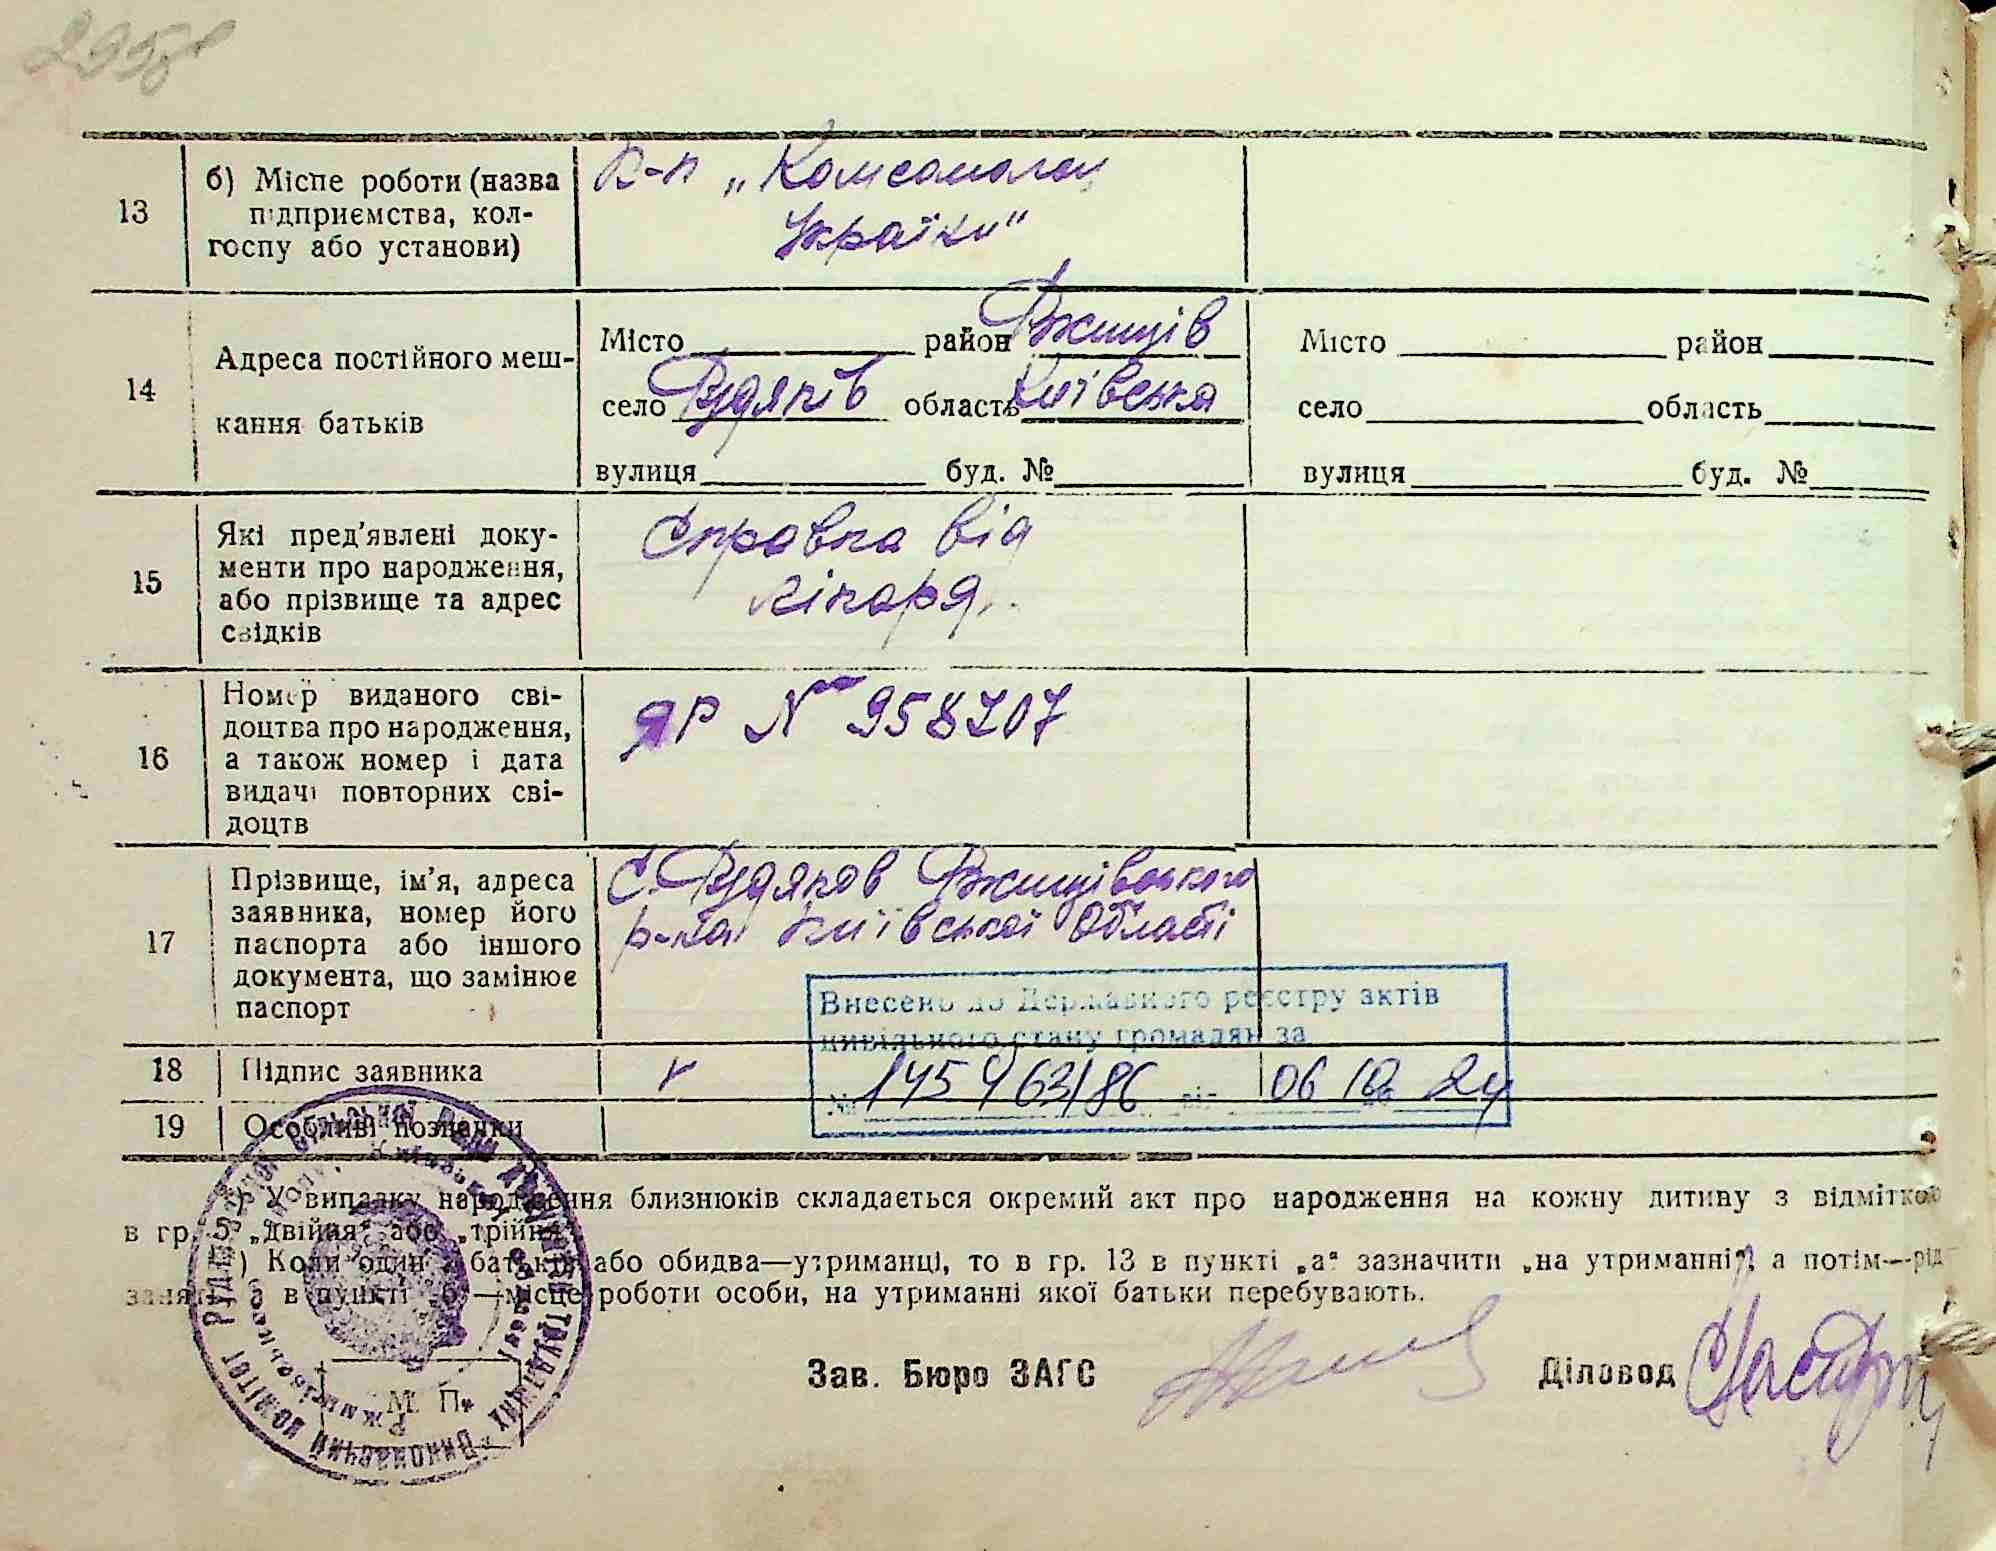 295
13
б) Місце роботи (назва
підприємства, кол-
госпу або установи)
К-п „Комсомолец
України"
14
Адреса постійного меш-
кання батьків
Місто район Ржищів
село Рудяків область Київська
вулиця буд. №
Місто район
село область
вулиця буд. №
15
Які пред'явлені доку-
менти про народження,
або прізвище та адрес
свідків
Справка від
лікаря.
16
Номер виданого сві-
доцтва про народження,
а також номер і дата
видачі повторних сві-
доцтв
ЯР № 958707
17
Прізвище, ім'я, адреса
заявника, номер його
паспорта або іншого
документа, що замінює
паспорт
С. Рудяков Ржищівського
р-на Київської області
Внесено до Державного реєстру актів
цивільного стану громадян за
№ 145463/86 від 06 10 24
18
Підпис заявника
19
Особливі позначки
) У випадку народження близнюків складається окремий акт про народження на кожну дитину з відміткою
в гр. 5 „двійня" або „трійня"
) Коли один з батьків або обидва—утриманці, то в гр. 13 в пункті „а" зазначити „на утриманні", а потім—рід
занять, а в пункті „б"—місце роботи особи, на утриманні якої батьки перебувають.
Зав. Бюро ЗАГС
Діловод
М. П.
Виконавчий комітет Рудяківської сільської Ради депутатів трудящих
Ржищівського Київської області